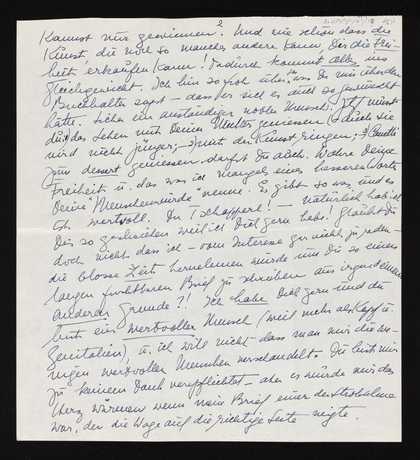 Kannst nur gewinnen! Und wie schön dass die
Kunst, die noch so manches andere kann, Dir die Frei-
heit erkaufen kann! Dadurch kommt alles ins
Gleichgewicht. Ich bin so froh über was Du mir über den
Buchhalter sagst – dass er sich es auch so gewünscht
hätte. Sicher ein anständiger nobler Mensch! Du musst
das Leben mit Deiner Mutter geniessen (auch sie
wird nicht jünger) mit der Kunst ringen;
zum dessert geniessen darfst Du auch. Wahre Deine
Freiheit u. das was ich mangels eines besseren Worts
Deine "Menschenwürde" nenne. Es gibt so was und es
ist wertvoll. Du Tschapperl! – natürlich hab ich
Dir so geschrieben weil ich Dich gern habe! Glaubst Du
doch nicht dass ich – vom Interesse gar nicht zu reden –
die blosse Zeit hernehmen würde um Dir so einen
langen furchtbaren Brief zu schreiben aus irgend einem
anderen Grunde?! Ich habe Dich gern und Du
bist ein wertvoller Mensch (weil mehr als Kopf u.
Genitalien) u. ich will nicht dass man mir die we-
nigen wertvollen Menschen verschandelt. Du bist mir
zu keinem Dank verpflichtet – aber es würde mir das
Herz wärmen wenn mein Brief einer der Strohhalme
war, der die Wage auf die richtige Seite neigte.